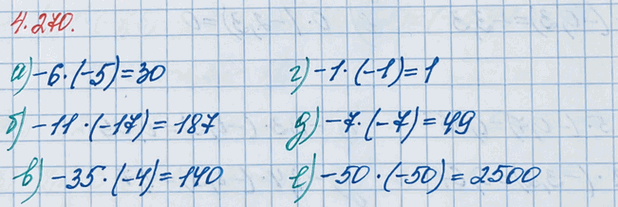 4.270.
а) -6·(-5)=30
б) -11·(-17)=187
в) -35·(-4)=140
г) -1·(-1)=1
д) -7·(-7)=49
е) -50·(-50)=2500